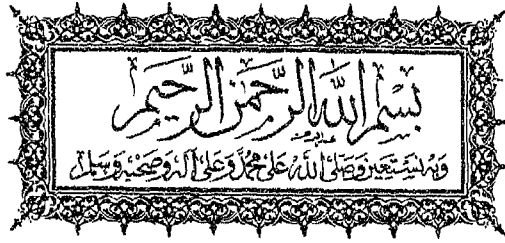 بِسْمِ اللَّهِ الرَّحْمَنِ الرَّحِيمِ
وَبِهِ نَسْتَعِين وَصَلَّى اللَّهُ عَلَى مُحَمَّدٍ وَعَلَى آلِهِ وَصَحْبِهِ وَسَلَّم